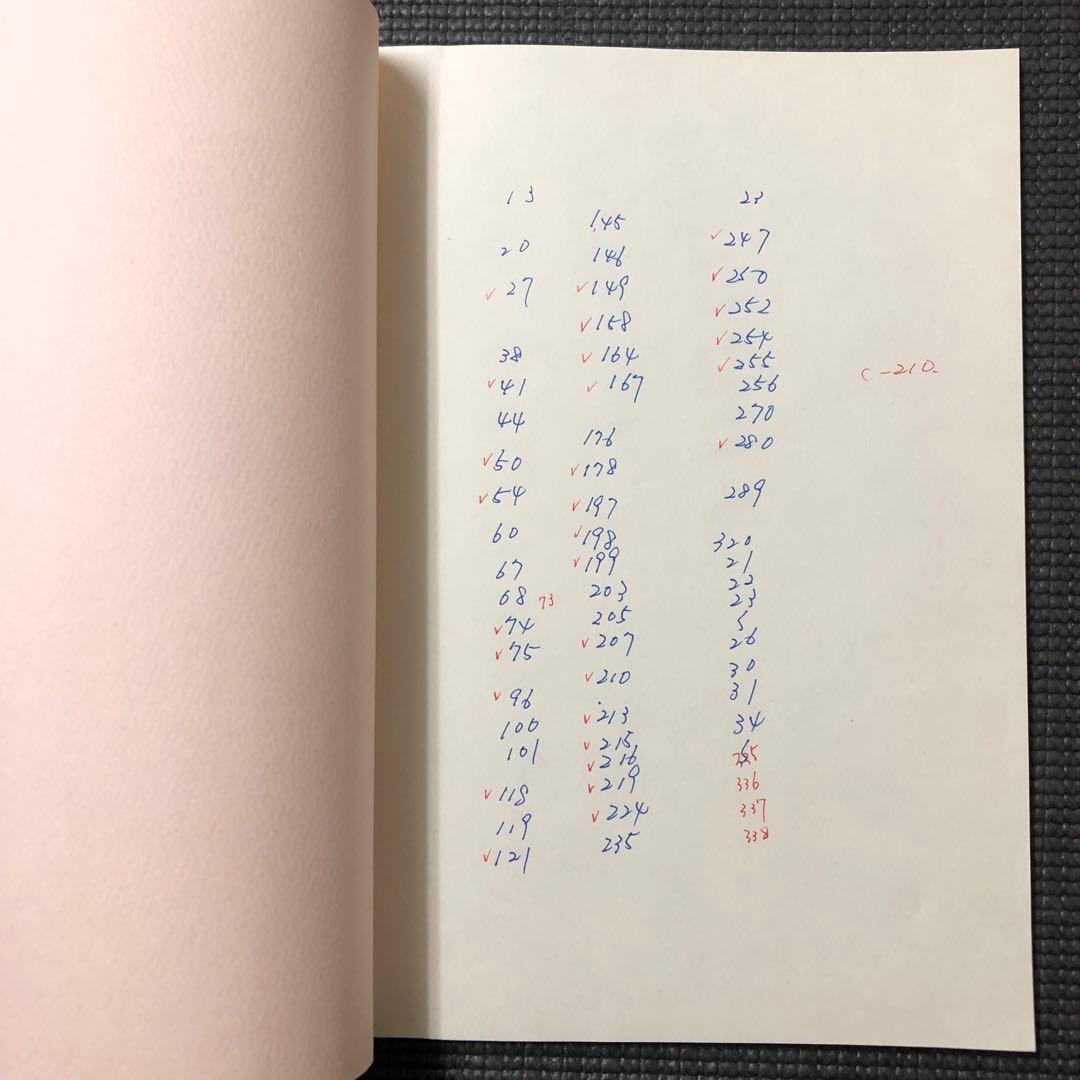 13
20
✓ 27
38
✓ 41
44
✓ 50
✓ 54
60
67
68 73
✓ 74
✓ 75
✓ 96
100
101
✓ 118
119
✓ 121
145
146
✓ 149
✓ 158
✓ 164
✓ 167
176
✓ 178
✓ 197
✓ 198
✓ 199
203
205
✓ 207
✓ 210
✓ 213
✓ 215
✓ 216
✓ 219
✓ 224
235
23
✓ 247
✓ 250
✓ 252
✓ 254
✓ 255
256
270
✓ 280
289
320
21
22
23
5
26
30
31
34
336
337
338
C-210.